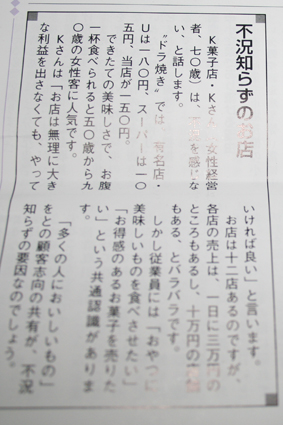 不況知らずのお店
K菓子店・Kさん（女性経営
者、七〇歳）は、不況を感じな
い、と話します。
“ドラ焼き”では、有名店・
Uは一八〇円、スーパーは一〇
五円、当店が一五〇円。
できたての美味しさで、お腹
一杯食べられると五〇歳から九
〇歳の女性客に人気です。
Kさんは「お店は無理に大き
な利益を出さなくても、やって
いければ良い」と言います。
お店は十二店あるのですが、
各店の売上は、一日に三万円の
ところもあるし、十万円の店舗
もある、とバラバラです。
しかし従業員には「おやつに
美味しいものを食べさせたい」
「お得感のあるお菓子を売りた
い」という共通認識がありま
す。
「多くの人においしいもの」
をとの顧客志向の共有が、不況
知らずの要因なのでしょう。